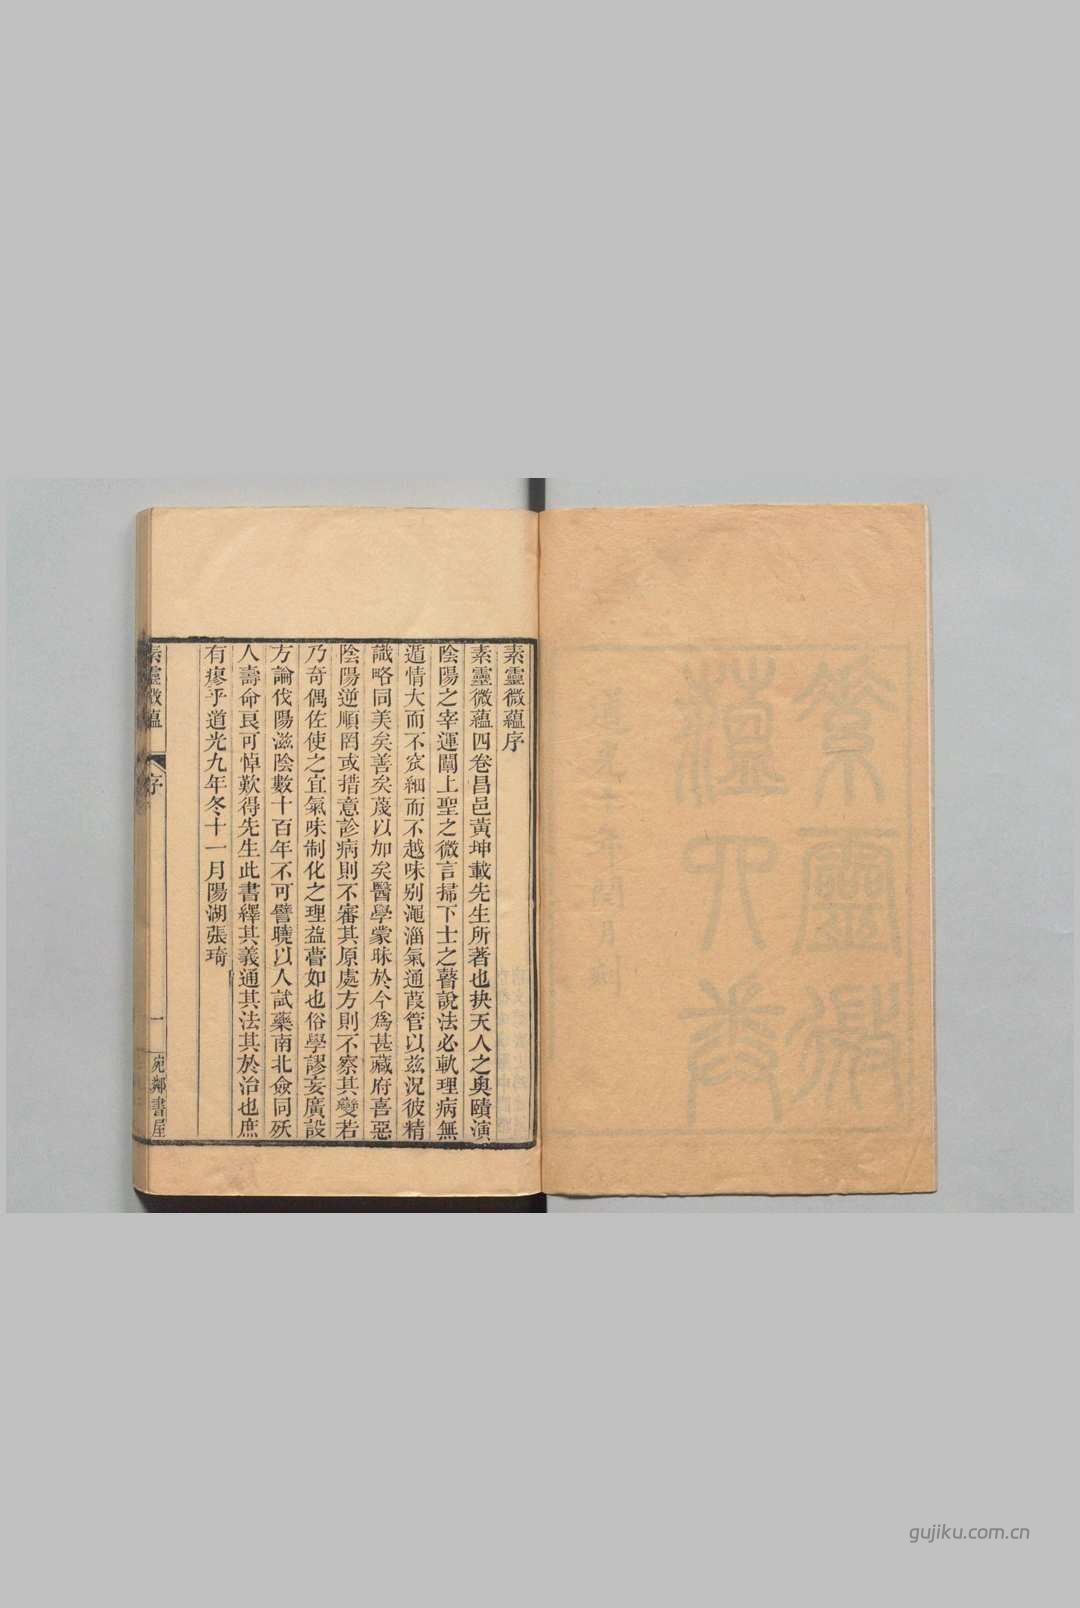 素靈微蘊序
素靈微蘊四卷昌邑黃坤載先生所著也抉天人之奧賾演
陰陽之宰運闡上聖之微言掃下士之瞽說法必軌理病無
遁情大而不窕細而不越味別澠淄氣通葭管以茲況彼精
識略同美矣善矣蔑以加矣醫學蒙昧於今爲甚藏府喜惡
陰陽逆順罔或措意診病則不審其原處方則不察其變若
乃奇偶佐使之宜氣味制化之理益瞢如也俗學謬妄廣設
方論伐陽滋陰數十百年不可譬曉以人試藥南北僉同殀
人壽命良可悼歎得先生此書繹其義通其法其於治也庶
有瘳乎道光九年冬十一月陽湖張琦
素靈微蘊
序
一
宛鄰書屋
素靈微
蘊四卷
道光十年閏月刻
gujiku.com.cn